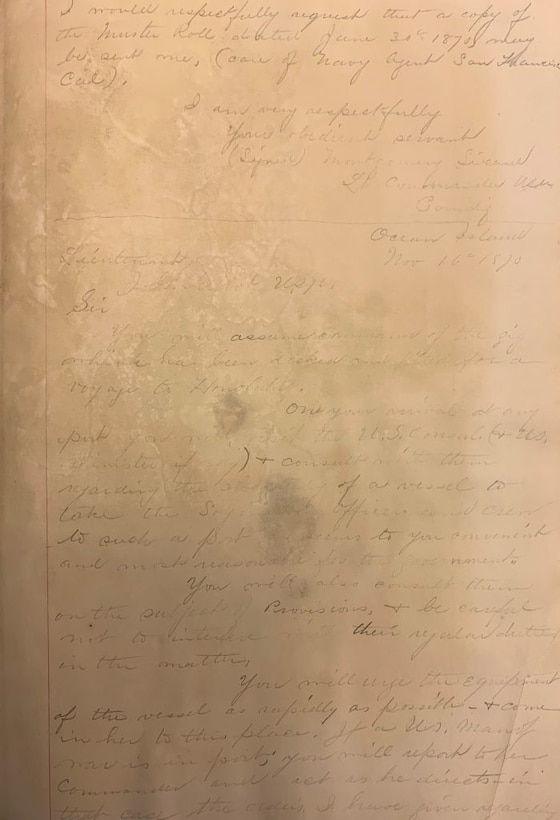 I would respectfully request that a copy of
the Muster Roll dated June 30th 1870, may
be sent me, (care of Navy Agent San Francisco
Cal).
I am very respectfully
Your obedient servant
(Signed) Montgomery Sicard
Lt Commander USN
Comdg
Ocean Island
Nov 16th 1870
Lieutenant
USN.
Sir
You will assume command of the gig
which has been decked and for a
voyage to Honolulu.
On your arrival at any
port you will the U.S. Consul (+ U.S.
Minister if any) + consult with them
regarding the of a vessel to
take the officers and crew
to such a port seems to you convenient
and most reasonable to the government.
You will also consult them
on the subject of Provisions, + be careful
not to interfere with their regular duties
in the matter.
You will urge the equipment
of the vessel as rapidly as possible - + come
in her to this place. If a U.S. Man of
war is in port, you will report to her
Commander and act as he directs - in
that case the orders I have given